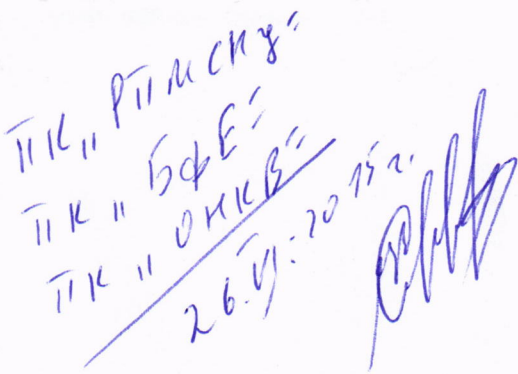 ПК „РПМСНУ“
ПК „БФЕ“
ПК „ОНКВ“
26.VI.2015г.